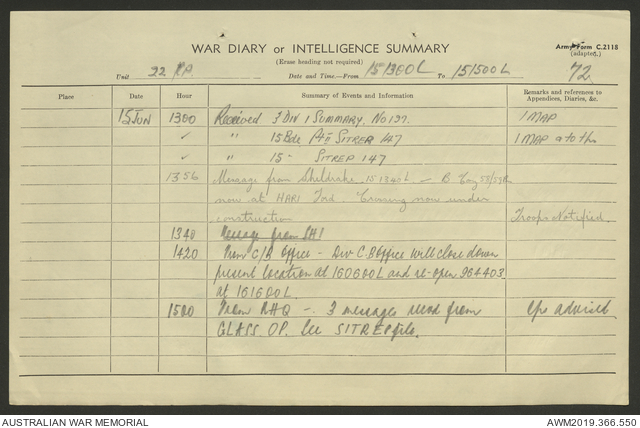 WAR DIARY or INTELLIGENCE SUMMARY
Army Form C.2118
(adapted.)
(Erase heading not required)
Unit 22 Date and Time.—From 151300L To 151500L 72
Place Date Hour Summary of Events and Information Remarks and references to Appendices, Diaries, &c.
15 JUN 1300 Received 3 DIV I SUMMARY. No 137. 1 MAP
✓ " 15 Bde Pt II SITREP 147 1 MAP
✓ " 15 " SITREP 147
1356 Message from Sheldrake 151340L – B Coy 58/59
now at HARI Ford. Crossing now under
construction Troops Notified.
1340 Message from
1420 From Office – Div Office will close down
present location at 160600L and re-open 264403
at 161600L.
1500 From RHQ – 3 messages from Ops advised
GLASS OP. See SITREP file.
AUSTRALIAN WAR MEMORIAL
AWM2019.366.550